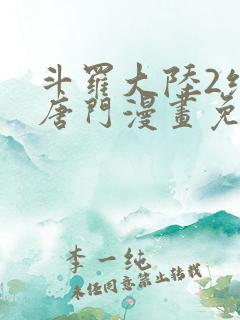 斗羅大陸2
唐門漫畫免
李一純
未经同意禁止转载